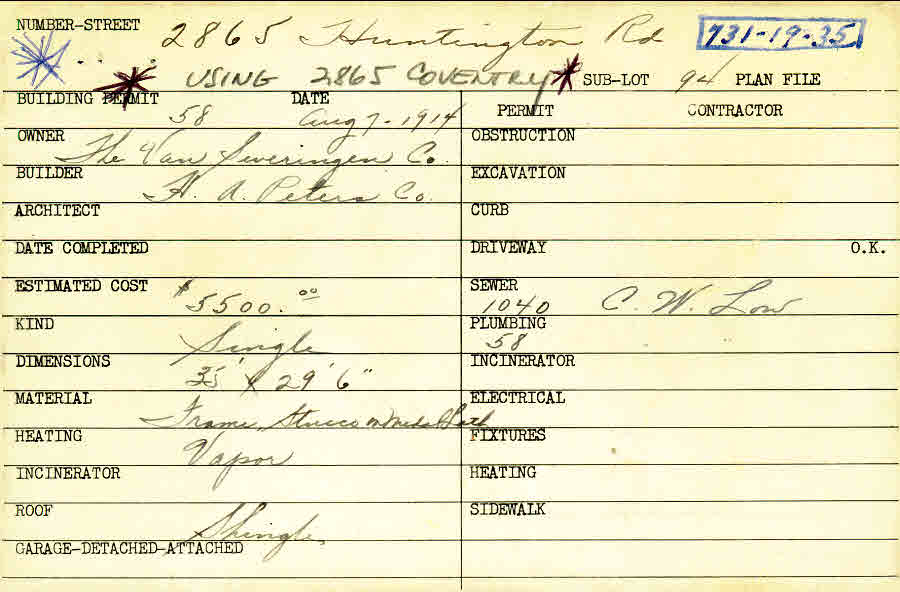 NUMBER-STREET 2865 Huntington Rd 731-19-35
USING 2865 COVENTRY SUB-LOT 94 PLAN FILE
BUILDING PERMIT 58 DATE Aug 7-1914 PERMIT CONTRACTOR
OWNER The Van Sweringen Co. OBSTRUCTION
BUILDER H. A. Peters Co. EXCAVATION
ARCHITECT CURB
DATE COMPLETED DRIVEWAY O.K.
ESTIMATED COST $5500.00 SEWER 1040 C. W. Low
KIND Single PLUMBING 58
DIMENSIONS 35' x 29' 6" INCINERATOR
MATERIAL Frame, Stucco Metal Lath ELECTRICAL
HEATING Vapor FIXTURES
INCINERATOR HEATING
ROOF Shingle SIDEWALK
GARAGE-DETACHED-ATTACHED